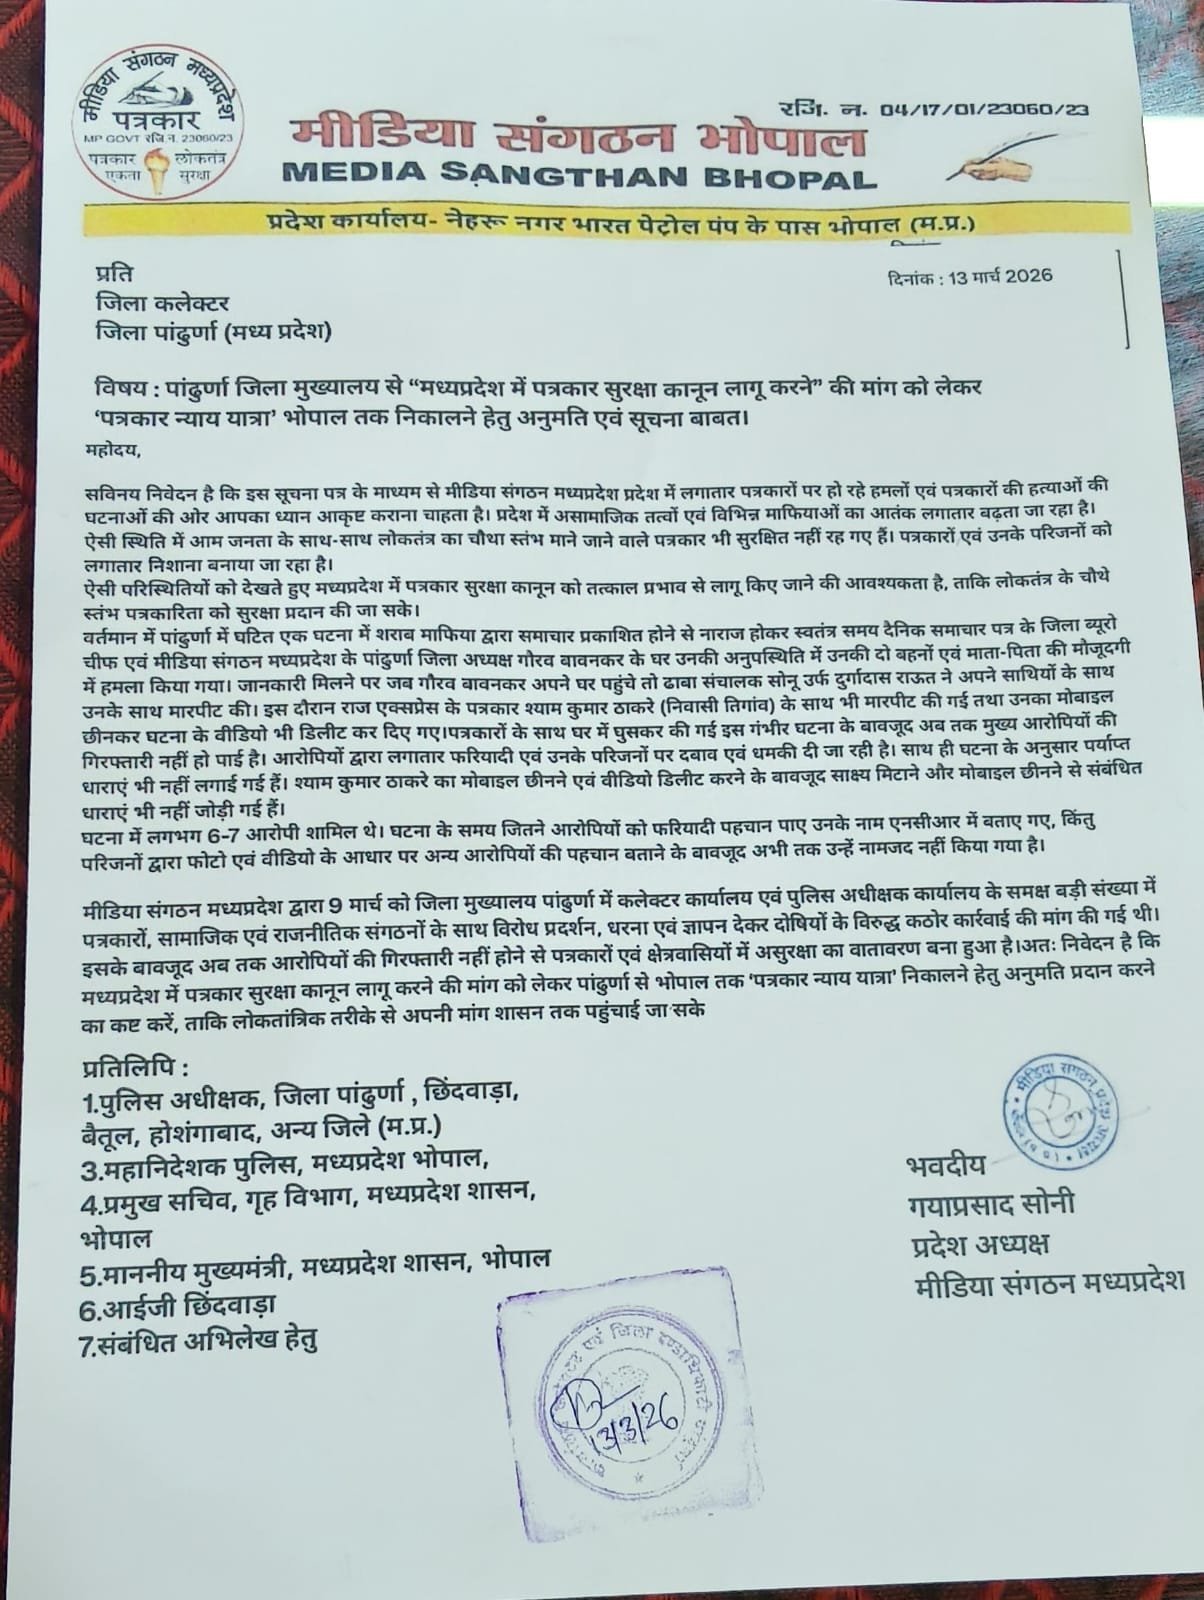 मीडिया संगठन मध्यप्रदेश
पत्रकार
MP GOVT रजि.न. 23060/23
पत्रकार लोकतंत्र
एकता सुरक्षा
रजि. न. 04/17/01/23060/23
मीडिया संगठन भोपाल
MEDIA SANGTHAN BHOPAL
प्रदेश कार्यालय- नेहरू नगर भारत पेट्रोल पंप के पास भोपाल (म.प्र.)
प्रति
दिनांक : 13 मार्च 2026
जिला कलेक्टर
जिला पांढुर्णा (मध्य प्रदेश)
विषय : पांढुर्णा जिला मुख्यालय से “मध्यप्रदेश में पत्रकार सुरक्षा कानून लागू करने” की मांग को लेकर
‘पत्रकार न्याय यात्रा’ भोपाल तक निकालने हेतु अनुमति एवं सूचना बाबत।
महोदय,
सविनय निवेदन है कि इस सूचना पत्र के माध्यम से मीडिया संगठन मध्यप्रदेश प्रदेश में लगातार पत्रकारों पर हो रहे हमलों एवं पत्रकारों की हत्याओं की
घटनाओं की ओर आपका ध्यान आकृष्ट कराना चाहता है। प्रदेश में असामाजिक तत्वों एवं विभिन्न माफियाओं का आतंक लगातार बढ़ता जा रहा है।
ऐसी स्थिति में आम जनता के साथ-साथ लोकतंत्र का चौथा स्तंभ माने जाने वाले पत्रकार भी सुरक्षित नहीं रह गए हैं। पत्रकारों एवं उनके परिजनों को
लगातार निशाना बनाया जा रहा है।
ऐसी परिस्थितियों को देखते हुए मध्यप्रदेश में पत्रकार सुरक्षा कानून को तत्काल प्रभाव से लागू किए जाने की आवश्यकता है, ताकि लोकतंत्र के चौथे
स्तंभ पत्रकारिता को सुरक्षा प्रदान की जा सके।
वर्तमान में पांढुर्णा में घटित एक घटना में शराब माफिया द्वारा समाचार प्रकाशित होने से नाराज होकर स्वतंत्र समय दैनिक समाचार पत्र के जिला ब्यूरो
चीफ एवं मीडिया संगठन मध्यप्रदेश के पांढुर्णा जिला अध्यक्ष गौरव बावनकर के घर उनकी अनुपस्थिति में उनकी दो बहनों एवं माता-पिता की मौजूदगी
में हमला किया गया। जानकारी मिलने पर जब गौरव बावनकर अपने घर पहुंचे तो ढाबा संचालक सोनू उर्फ दुर्गादास राऊत ने अपने साथियों के साथ
उनके साथ मारपीट की। इस दौरान राज एक्सप्रेस के पत्रकार श्याम कुमार ठाकरे (निवासी तिगांव) के साथ भी मारपीट की गई तथा उनका मोबाइल
छीनकर घटना के वीडियो भी डिलीट कर दिए गए।पत्रकारों के साथ घर में घुसकर की गई इस गंभीर घटना के बावजूद अब तक मुख्य आरोपियों की
गिरफ्तारी नहीं हो पाई है। आरोपियों द्वारा लगातार फरियादी एवं उनके परिजनों पर दबाव एवं धमकी दी जा रही है। साथ ही घटना के अनुसार पर्याप्त
धाराएं भी नहीं लगाई गई हैं। श्याम कुमार ठाकरे का मोबाइल छीनने एवं वीडियो डिलीट करने के बावजूद साक्ष्य मिटाने और मोबाइल छीनने से संबंधित
धाराएं भी नहीं जोड़ी गई हैं।
घटना में लगभग 6-7 आरोपी शामिल थे। घटना के समय जितने आरोपियों को फरियादी पहचान पाए उनके नाम एनसीआर में बताए गए, किंतु
परिजनों द्वारा फोटो एवं वीडियो के आधार पर अन्य आरोपियों की पहचान बताने के बावजूद अभी तक उन्हें नामजद नहीं किया गया है।
मीडिया संगठन मध्यप्रदेश द्वारा 9 मार्च को जिला मुख्यालय पांढुर्णा में कलेक्टर कार्यालय एवं पुलिस अधीक्षक कार्यालय के समक्ष बड़ी संख्या में
पत्रकारों, सामाजिक एवं राजनीतिक संगठनों के साथ विरोध प्रदर्शन, धरना एवं ज्ञापन देकर दोषियों के विरुद्ध कठोर कार्रवाई की मांग की गई थी।
इसके बावजूद अब तक आरोपियों की गिरफ्तारी नहीं होने से पत्रकारों एवं क्षेत्रवासियों में असुरक्षा का वातावरण बना हुआ है।अतः निवेदन है कि
मध्यप्रदेश में पत्रकार सुरक्षा कानून लागू करने की मांग को लेकर पांढुर्णा से भोपाल तक ‘पत्रकार न्याय यात्रा’ निकालने हेतु अनुमति प्रदान करने
का कष्ट करें, ताकि लोकतांत्रिक तरीके से अपनी मांग शासन तक पहुंचाई जा सके
प्रतिलिपि :
1.पुलिस अधीक्षक, जिला पांढुर्णा , छिंदवाड़ा,
बैतूल, होशंगाबाद, अन्य जिले (म.प्र.)
3.महानिदेशक पुलिस, मध्यप्रदेश भोपाल,
4.प्रमुख सचिव, गृह विभाग, मध्यप्रदेश शासन,
भोपाल
5.माननीय मुख्यमंत्री, मध्यप्रदेश शासन, भोपाल
6.आईजी छिंदवाड़ा
7.संबंधित अभिलेख हेतु
मीडिया संगठन प्रदेश अध्यक्ष
भवदीय
गयाप्रसाद सोनी
प्रदेश अध्यक्ष
मीडिया संगठन मध्यप्रदेश
एवं जिला दण्डाधिकारी
13/3/26